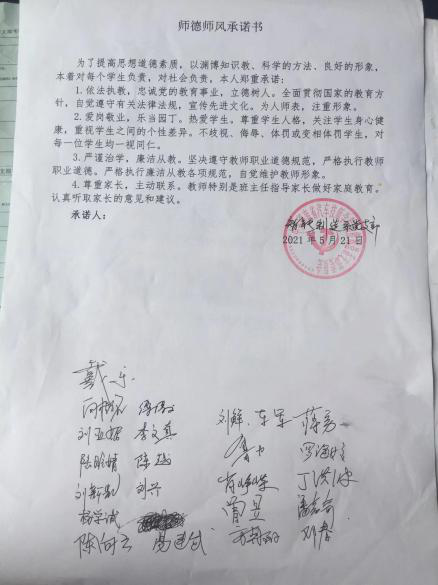 师德师风承诺书
为了提高思想道德素质，以渊博知识教、科学的方法、良好的形象，
本着对每个学生负责，对社会负责，本人郑重承诺：
1.依法执教，忠诚党的教育事业，立德树人。全面贯彻国家的教育方
针，自觉遵守有关法律法规，宣传先进文化。为人师表，注重形象。
2.爱岗敬业，乐当园丁。热爱学生。尊重学生人格，关注学生身心健
康，重视学生之间的个性差异。不歧视、侮辱、体罚或变相体罚学生，对
每一位学生均一视同仁。
3.严谨治学，廉洁从教。坚决遵守教师职业道德规范，严格执行教师
职业道德。严格执行廉洁从教各项规范，自觉维护教师形象。
4.尊重家长，主动联系。教师特别是班主任指导家长做好家庭教育。
认真听取家长的意见和建议。
承诺人：
智能制造系党支部
2021年5月21日
戴乐
刘亚娟 李文莲
陆盼婧 陈斌 罗海
刘新 刘兴 肖峥嵘
杨学成 曾昱 潘
陈向云 易建斌 邓春